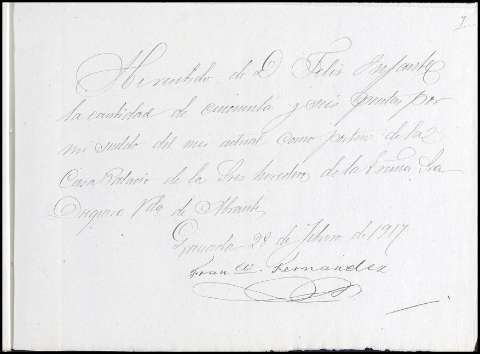 1
He recibido de D. Felix Infante
la cantidad de cincuenta y seis pesetas por
mi sueldo del mes actual como portero de la
Casa Palacio de la Sres herederos de la Excma Sra
Duquesa Vda de Abrantes
Granada 28 de Febrero de 1917
Franco Fernandez